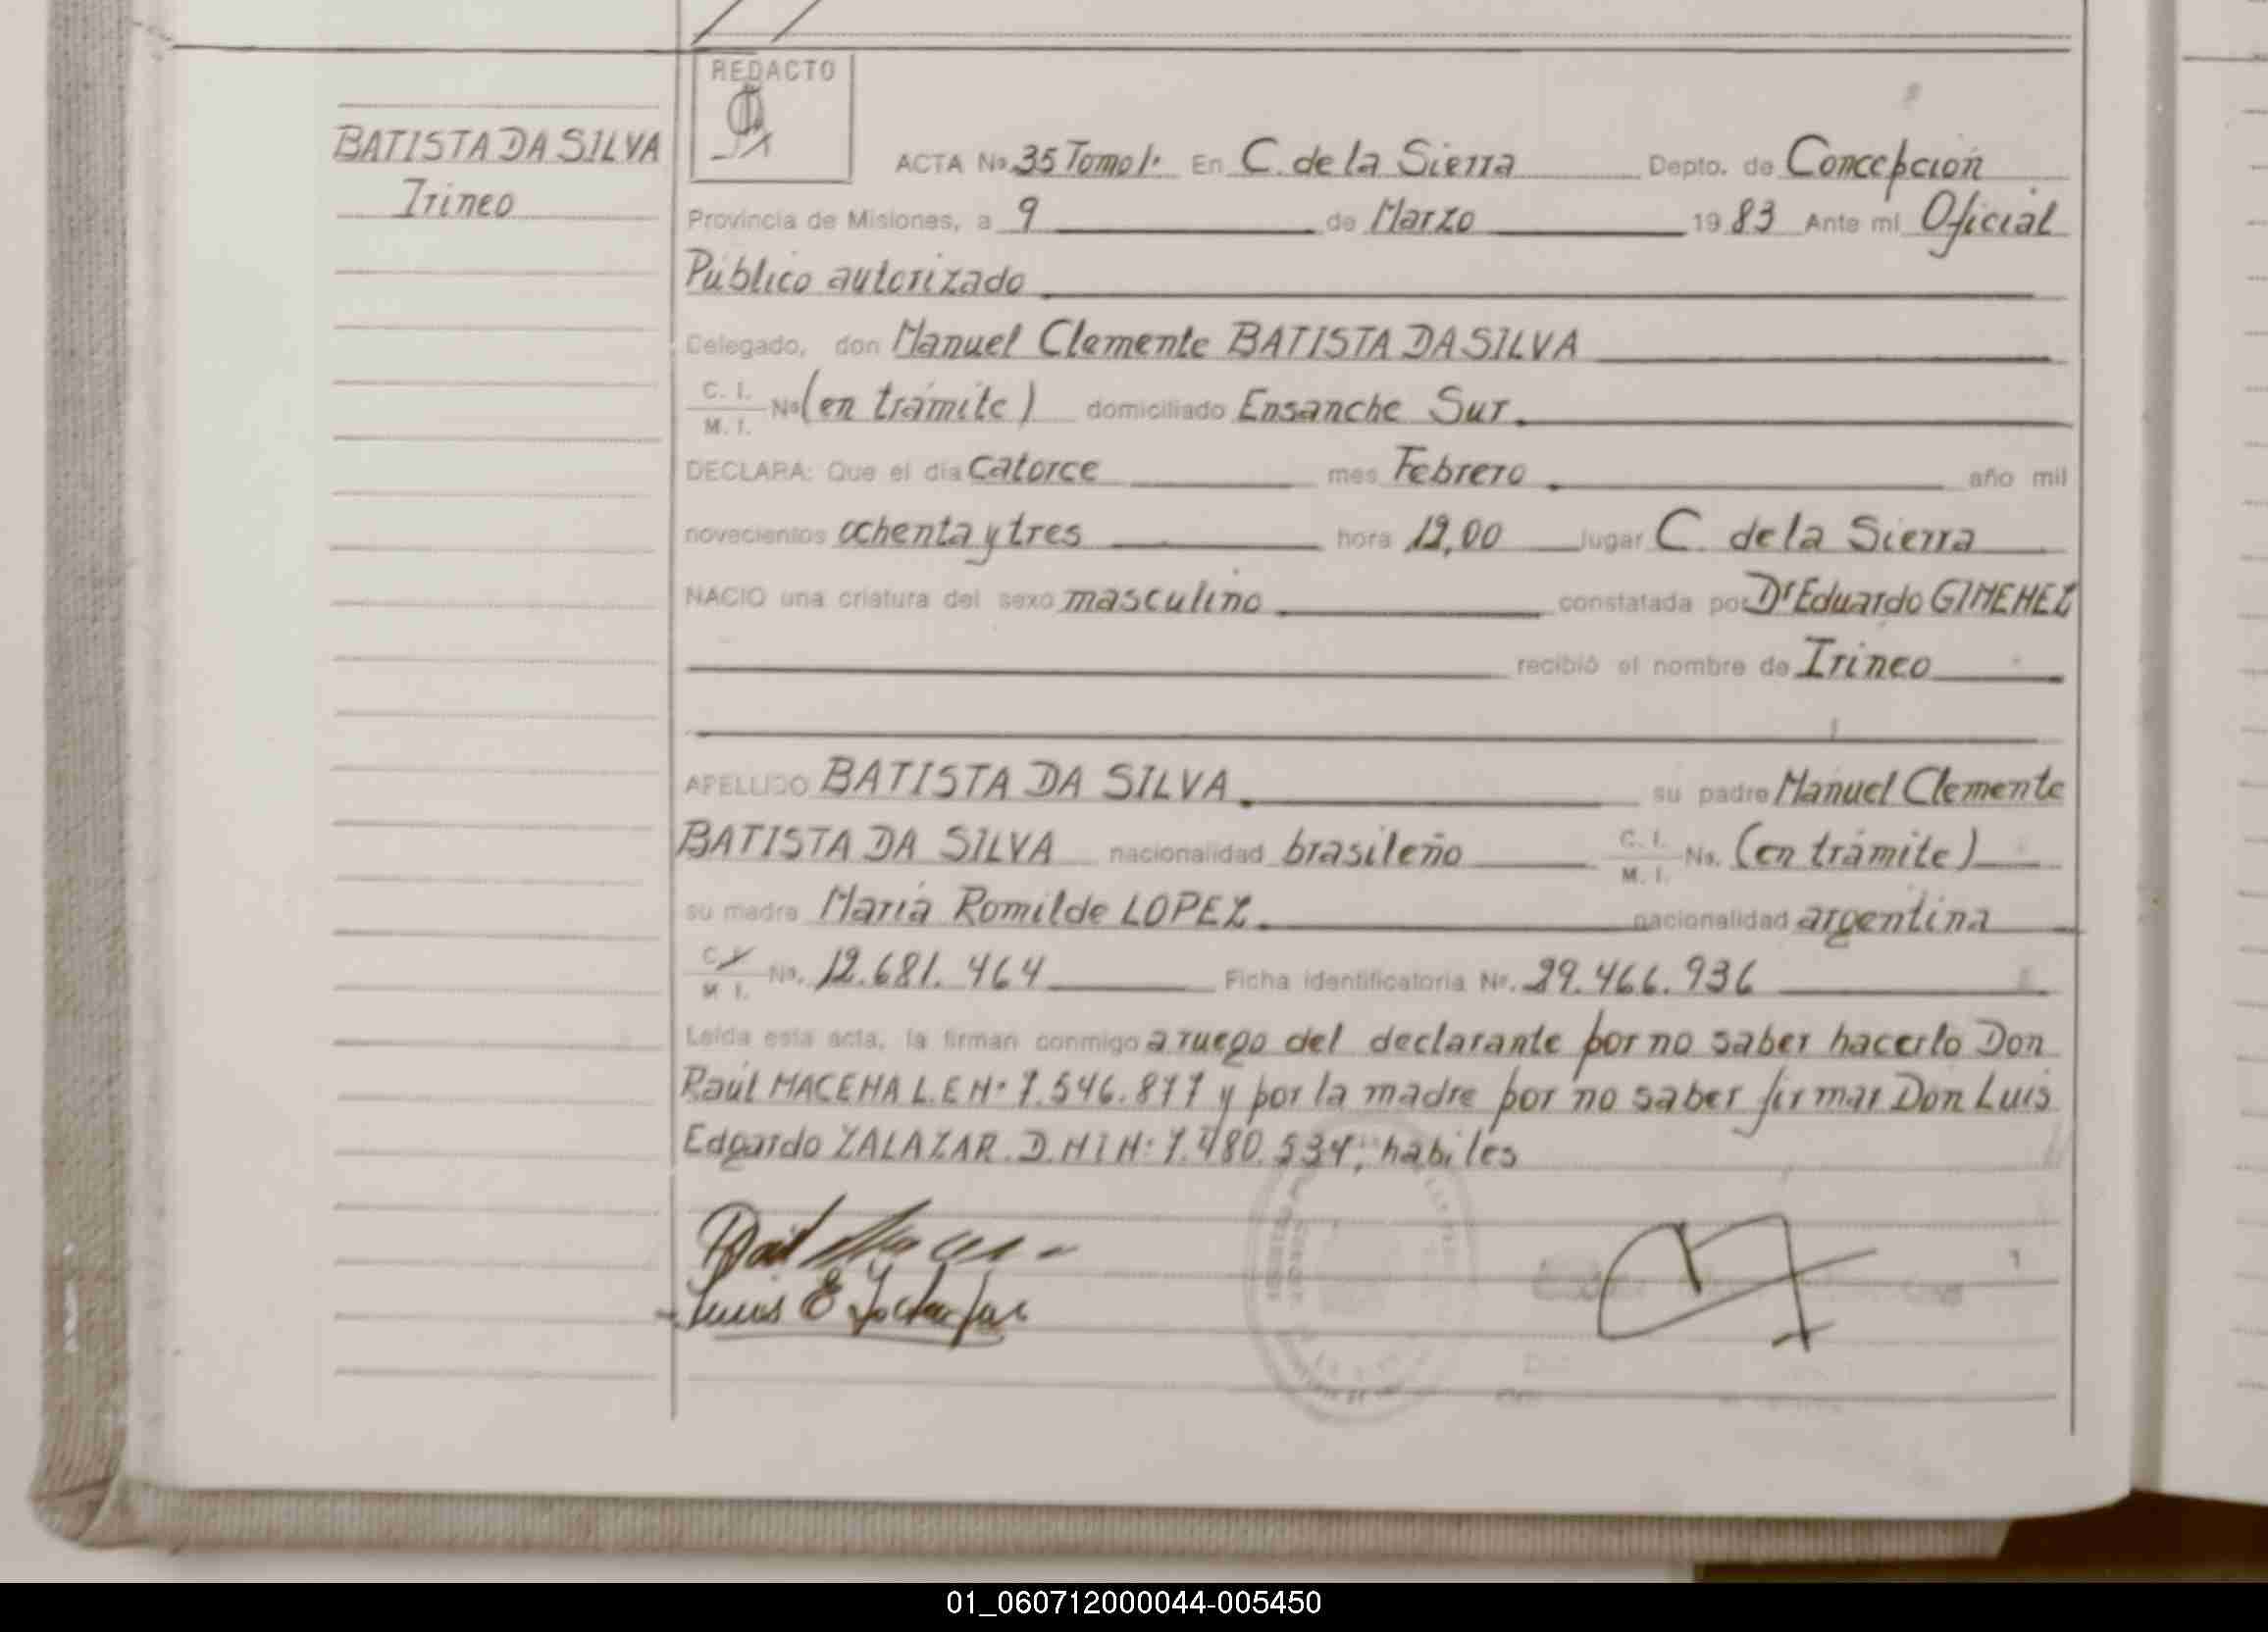 REDACTO
BATISTA DA SILVA
Irineo
ACTA No 35 Tomo 1º En C. de la Sierra Depto. de Concepción
Provincia de Misiones, a 9 de Marzo 1983 Ante mí Oficial
Público autorizado
Delegado, don Manuel Clemente BATISTA DA SILVA
C. I. M. I. No (en trámite) domiciliado Ensanche Sur.
DECLARA: Que el día catorce mes Febrero año mil
novecientos ochenta y tres hora 12,00 lugar C. de la Sierra
NACIO una criatura del sexo masculino constatada por Dr Eduardo GIMENEZ
recibió el nombre de Irineo
APELLIDO BATISTA DA SILVA su padre Manuel Clemente
BATISTA DA SILVA nacionalidad brasileño C. I. M. I. No. (en trámite)
su madre María Romilde LOPEZ nacionalidad argentina
C. I. M. I. No. 12.681.464 Ficha identificatoria Nº. 29.466.936
Leída esta acta, la firman conmigo a ruego del declarante por no saber hacerlo Don
Raúl MACENA L.E Nº 7.546.877 y por la madre por no saber firmar Don Luis
Edgardo ZALAZAR. D.N.I Nº 7.480.534, habiles
01_060712000044-005450